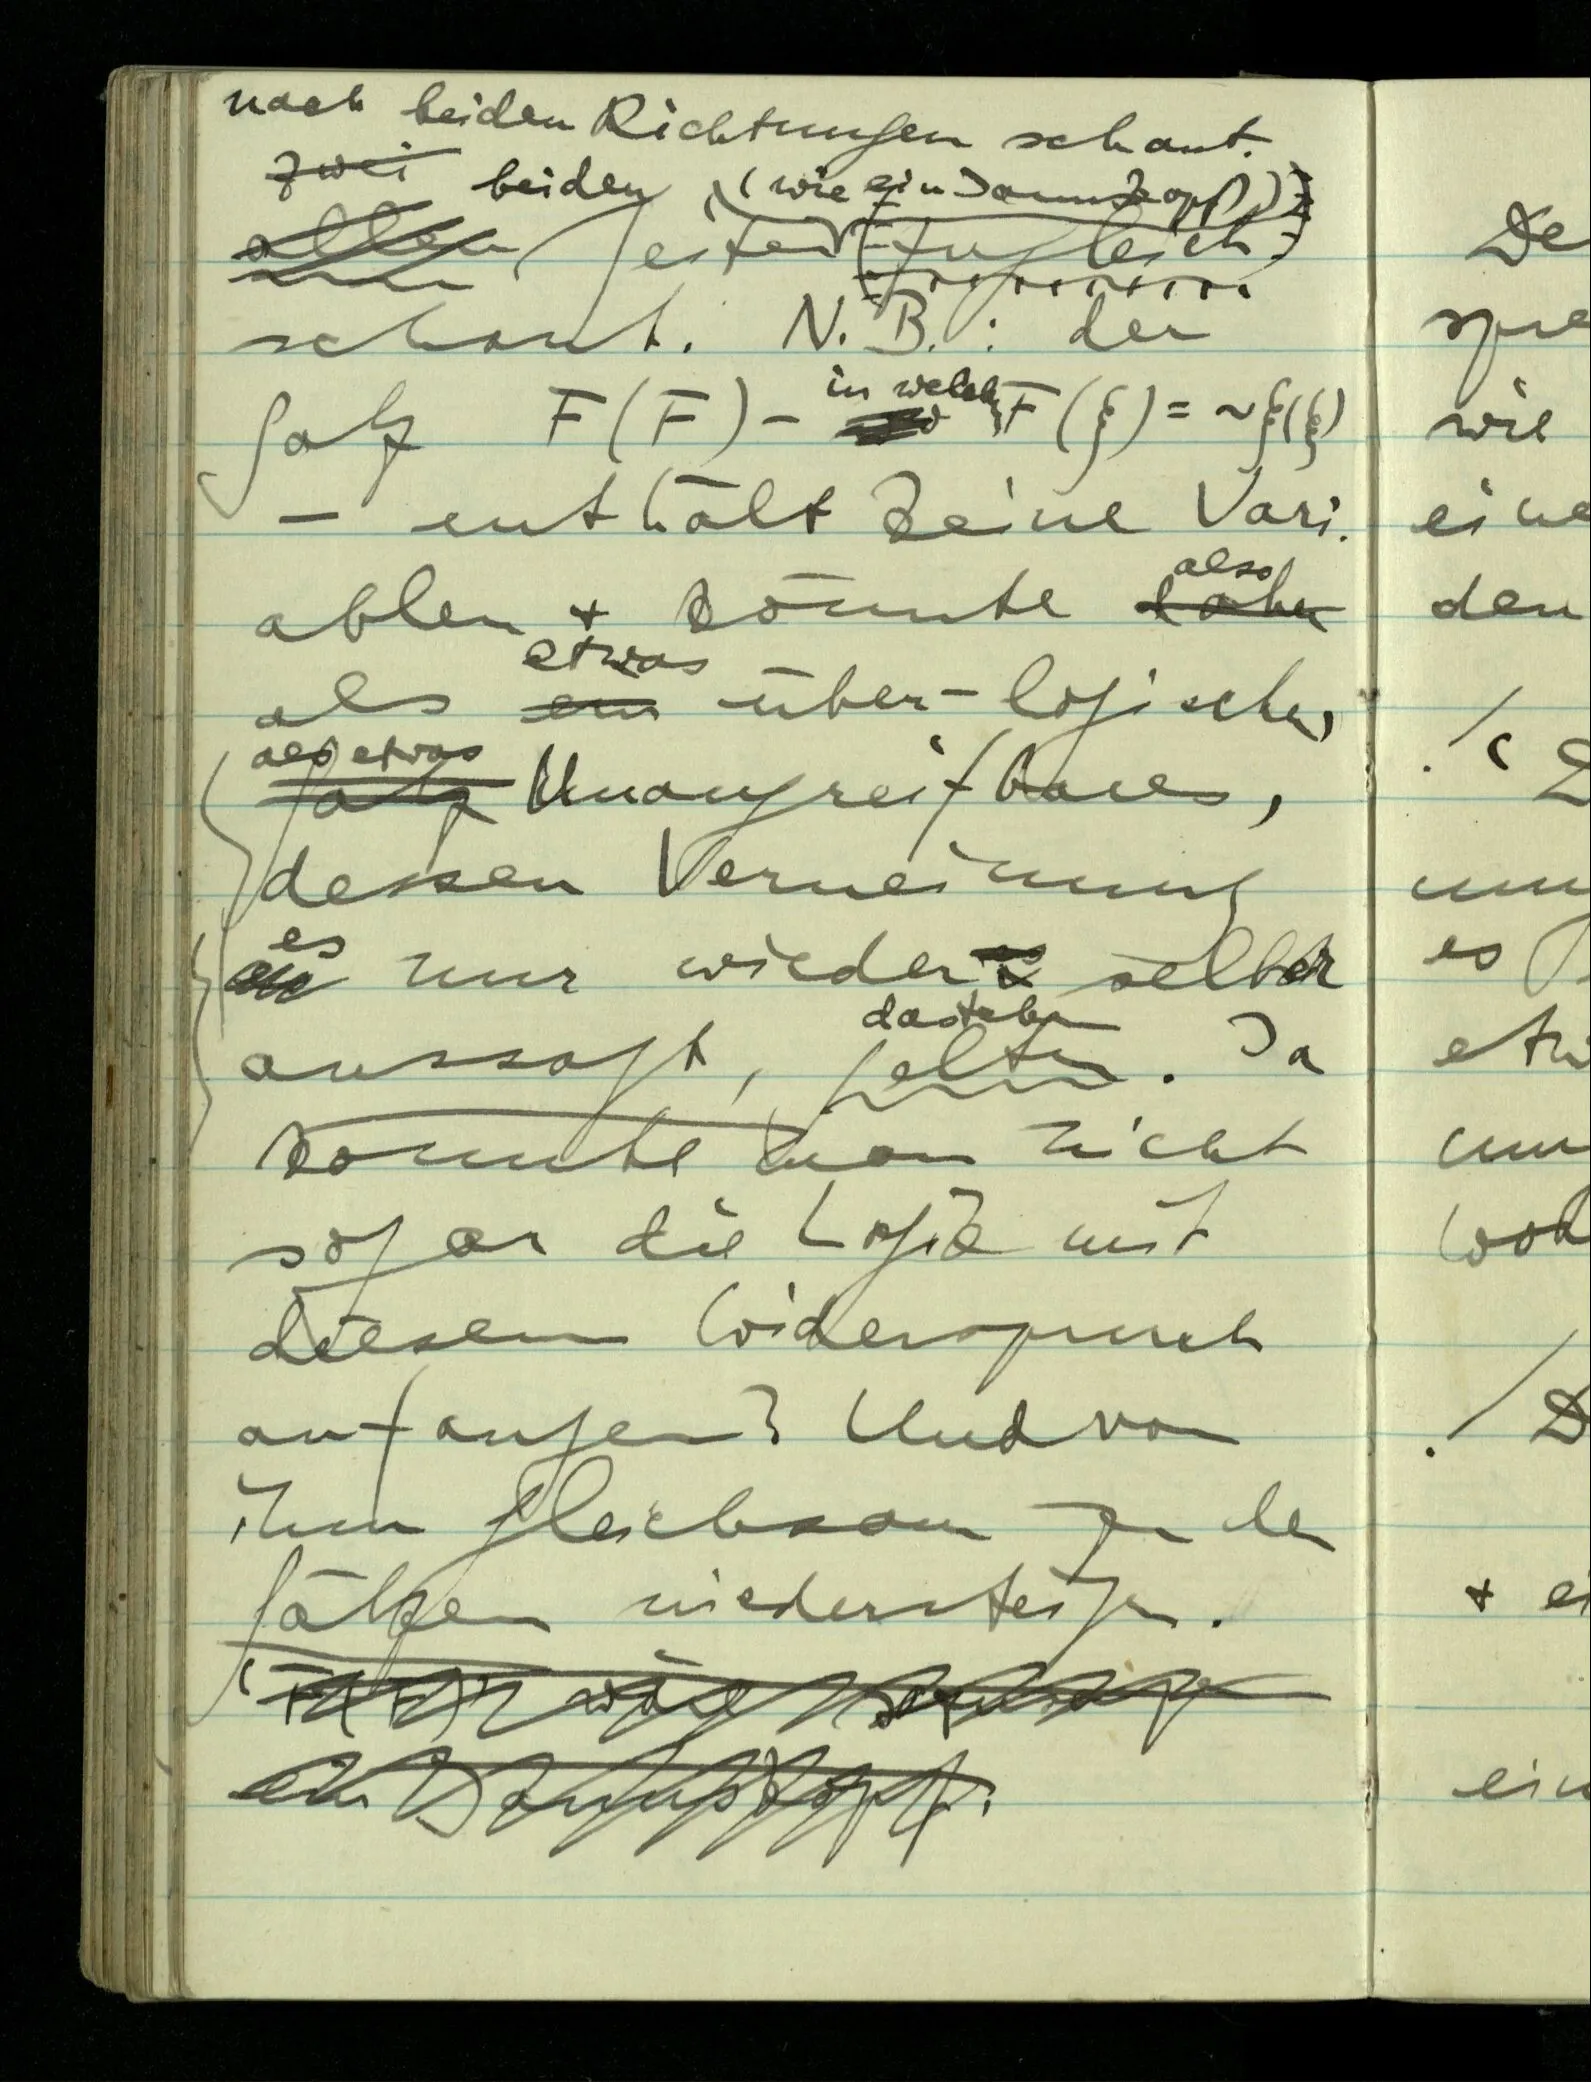 nach beiden Richtungen schaut.
zwei beiden (wie ein Januskopf)
allen Seiten (zugleich)
schaut. N.B.: der
Satz F(F) – in welchem F(ξ) = ~ξ(ξ)
– enthält keine Vari-
ablen + könnte also
daher
als etwas
ein über-logisches,
als etwas
Satz Unangreifbares,
dessen Verneinung
es nur wieder es selber
aussagt, dastehen
gelten. Ja
könnte man nicht
sogar die Logik mit
diesem Widerspruch
anfangen? Und von
ihm gleichsam zu den
Sätzen niedersteigen.
'F(F)' wäre
ein Januskopf.
De
spre
wie
eine
den
es
etw
ein